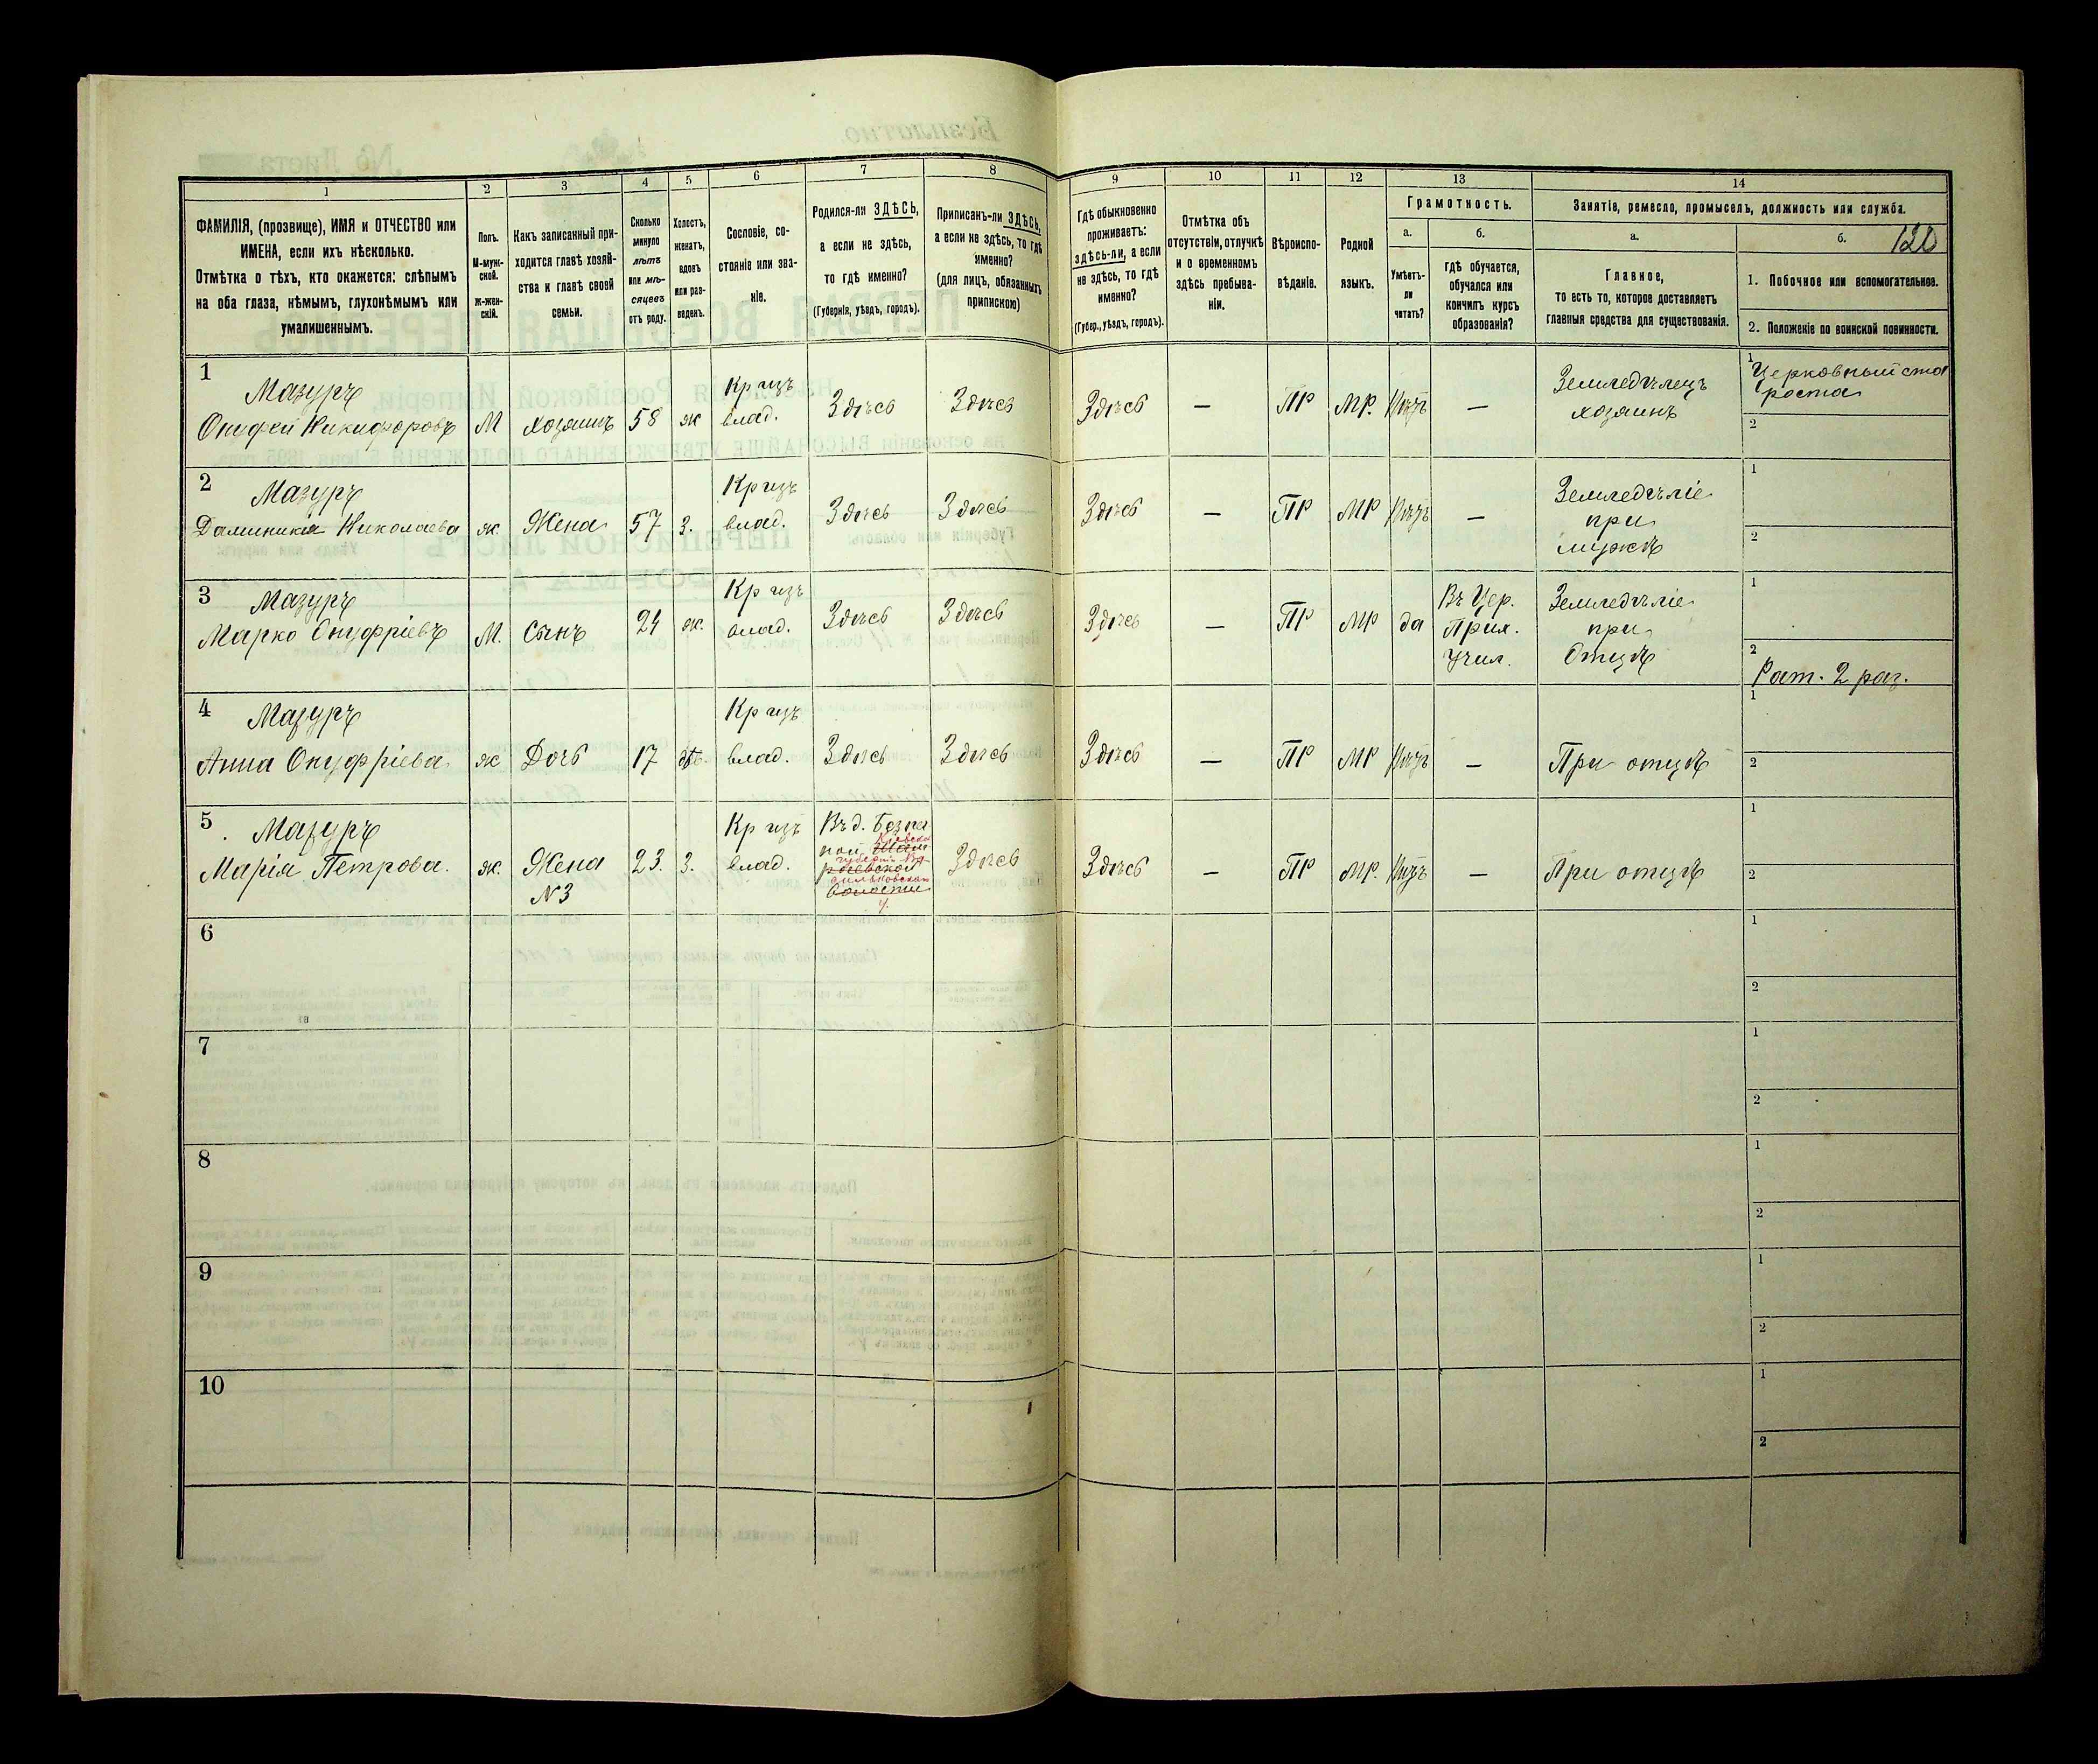 1 2 3 4 5 6 7 8 9 10 11 12 13 14
ФАМИЛІЯ, (прозвище), ИМЯ и ОТЧЕСТВО или
ИМЕНА, если ихъ нѣсколько.
Отмѣтка о тѣхъ, кто окажется: слѣпымъ
на оба глаза, нѣмымъ, глухонѣмымъ или
умалишеннымъ.
Полъ.
М-муж-
ской.
ж-жен-
скій.
Какъ записанный при-
ходится главѣ хозяй-
ства и главѣ своей
семьи.
Сколько
минуло
лѣтъ
или мѣ-
сяцевъ
отъ роду.
Холостъ,
женатъ,
вдовъ
или раз-
веденъ.
Сословіе, со-
стояніе или зва-
ніе.
Родился-ли ЗДѢСЬ,
а если не здѣсь,
то гдѣ именно?
(Губернія, уѣздъ, городъ).
Приписанъ-ли ЗДѢСЬ,
а если не здѣсь, то гдѣ
именно?
(для лицъ, обязанныхъ
припискою)
Гдѣ обыкновенно
проживаетъ:
здѣсь-ли, а если
не здѣсь, то гдѣ
именно?
(Губер., уѣздъ, городъ).
Отмѣтка объ
отсутствіи, отлучкѣ
и о временномъ
здѣсь пребыва-
ніи.
Вѣроиспо-
вѣданіе.
Родной
языкъ.
Грамотность.
а.
Умѣетъ-
ли
читать?
б.
гдѣ обучается,
обучался или
кончилъ курсъ
образованія?
Занятіе, ремесло, промыселъ, должность или служба.
а.
Главное,
то есть то, которое доставляетъ
главныя средства для существованія.
б. 120
1. Побочное или вспомогательное.
2. Положеніе по воинской повинности.
1
Мазуръ
Онуфрій Никифоровъ
М
хозяинъ
58
ж
Кр изъ
влад.
Здѣсь
Здѣсь
Здѣсь
—
ПР
МР.
Нѣтъ
—
Земледѣлецъ
хозяинъ
1
Церковный ста
роста
2
2
Мазуръ
Даминикія Николаева
ж.
Жена
57
з.
Кр изъ
влад.
Здѣсь
Здѣсь
Здѣсь
—
ПР
МР
Нѣтъ
—
Земледѣліе
при
мужѣ
1
2
3
Мазуръ
Марко Онуфріевъ
М.
Сынъ
24
ж.
Кр изъ
влад.
Здѣсь
Здѣсь
Здѣсь
—
ПР
МР
да
Въ Цер.
Прих.
Учил.
Земледѣліе
при
Отцѣ
1
2
Рат. 2 раз.
4
Мазуръ
Анна Онуфріева
ж
Дочь
17
дѣв.
Кр изъ
влад.
Здѣсь
Здѣсь
Здѣсь
—
ПР
МР
Нѣтъ
—
При отцѣ
1
2
5
Мазуръ
Марія Петрова.
ж.
Жена
N3
23.
з.
Кр изъ
влад.
Въ д.
волости
у.
Здѣсь
Здѣсь
—
ПР
МР.
Нѣтъ
—
При отцѣ
1
2
6
1
2
7
1
2
8
1
2
9
1
2
10
1
2